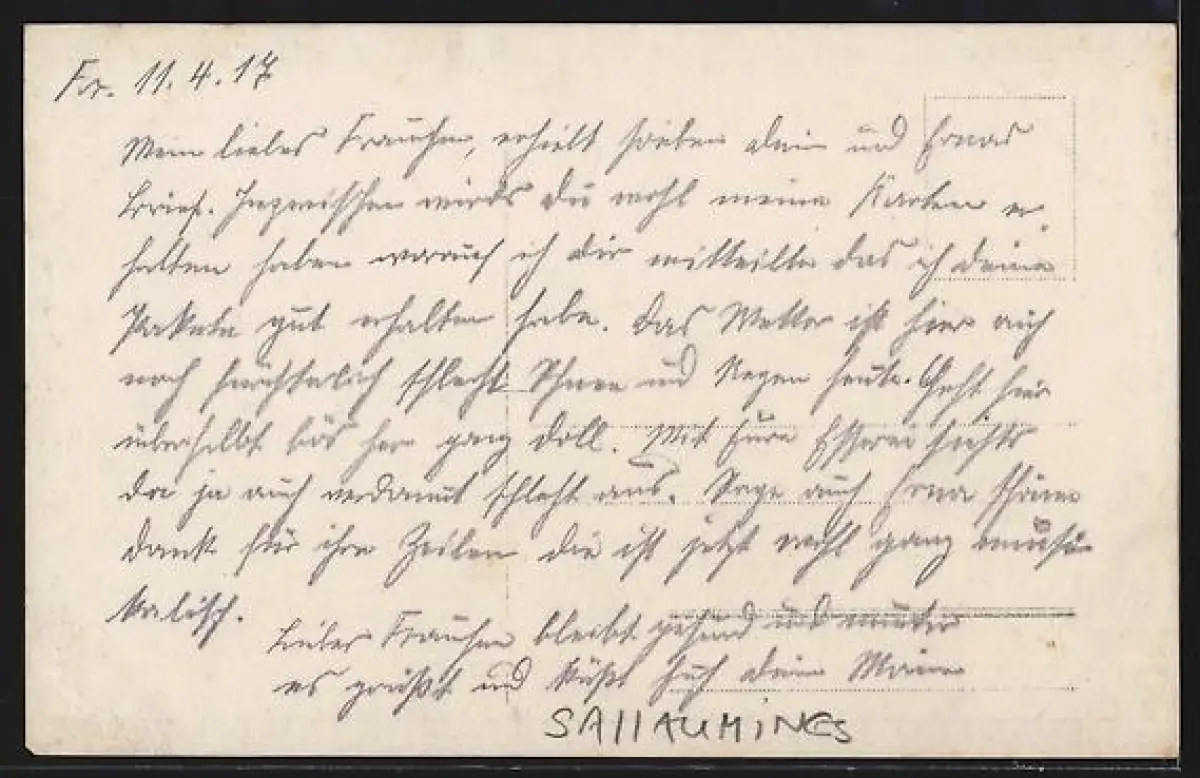 Fr. 11.4.17
Mein liebes Frauchen, erhielt soeben dein und Ernas
Brief. Inzwischen wirds du wohl meine Karten er
halten haben worauf ich dir mitteilte das ich deine
Pakete gut erhalten habe. Das Wetter ist hier auch
noch fürchterlich schlecht Schnee und Regen heute. Geht hier
überhaupt bös her ganz doll. Mit Eure Esserei siehts
da ja auch verdamt schlecht aus. Sage auch Erna schönen
dank für ihre Zeilen die ist jetzt wohl ganz musi
kalisch.
Liebes Frauchen bleibt gesund und munter
es grüßt und küßt Euch dein
SALLAUMINES